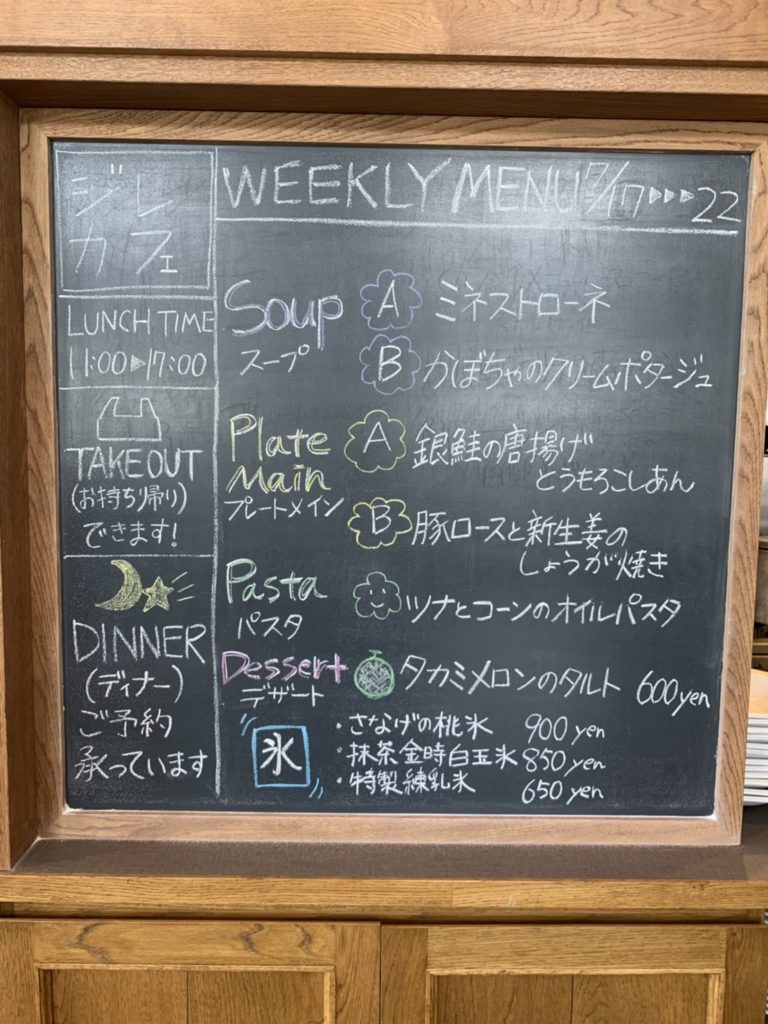 ジレ
カフェ
LUNCH TIME
11:00▷17:00
TAKEOUT
(お持ち帰り)
できます!
DINNER
(ディナー)
ご予約
承っています
WEEKLY MENU 7/17▷▷▷22
Soup
スープ
A ミネストローネ
B かぼちゃのクリームポタージュ
Plate
Main
プレートメイン
A 銀鮭の唐揚げ
とうもろこしあん
B 豚ロースと新生姜の
しょうが焼き
Pasta
パスタ
ツナとコーンのオイルパスタ
Dessert
デザート
タカミメロンのタルト 600yen
氷
・さなげの桃氷 900yen
・抹茶金時白玉氷 850yen
・特製練乳氷 650yen